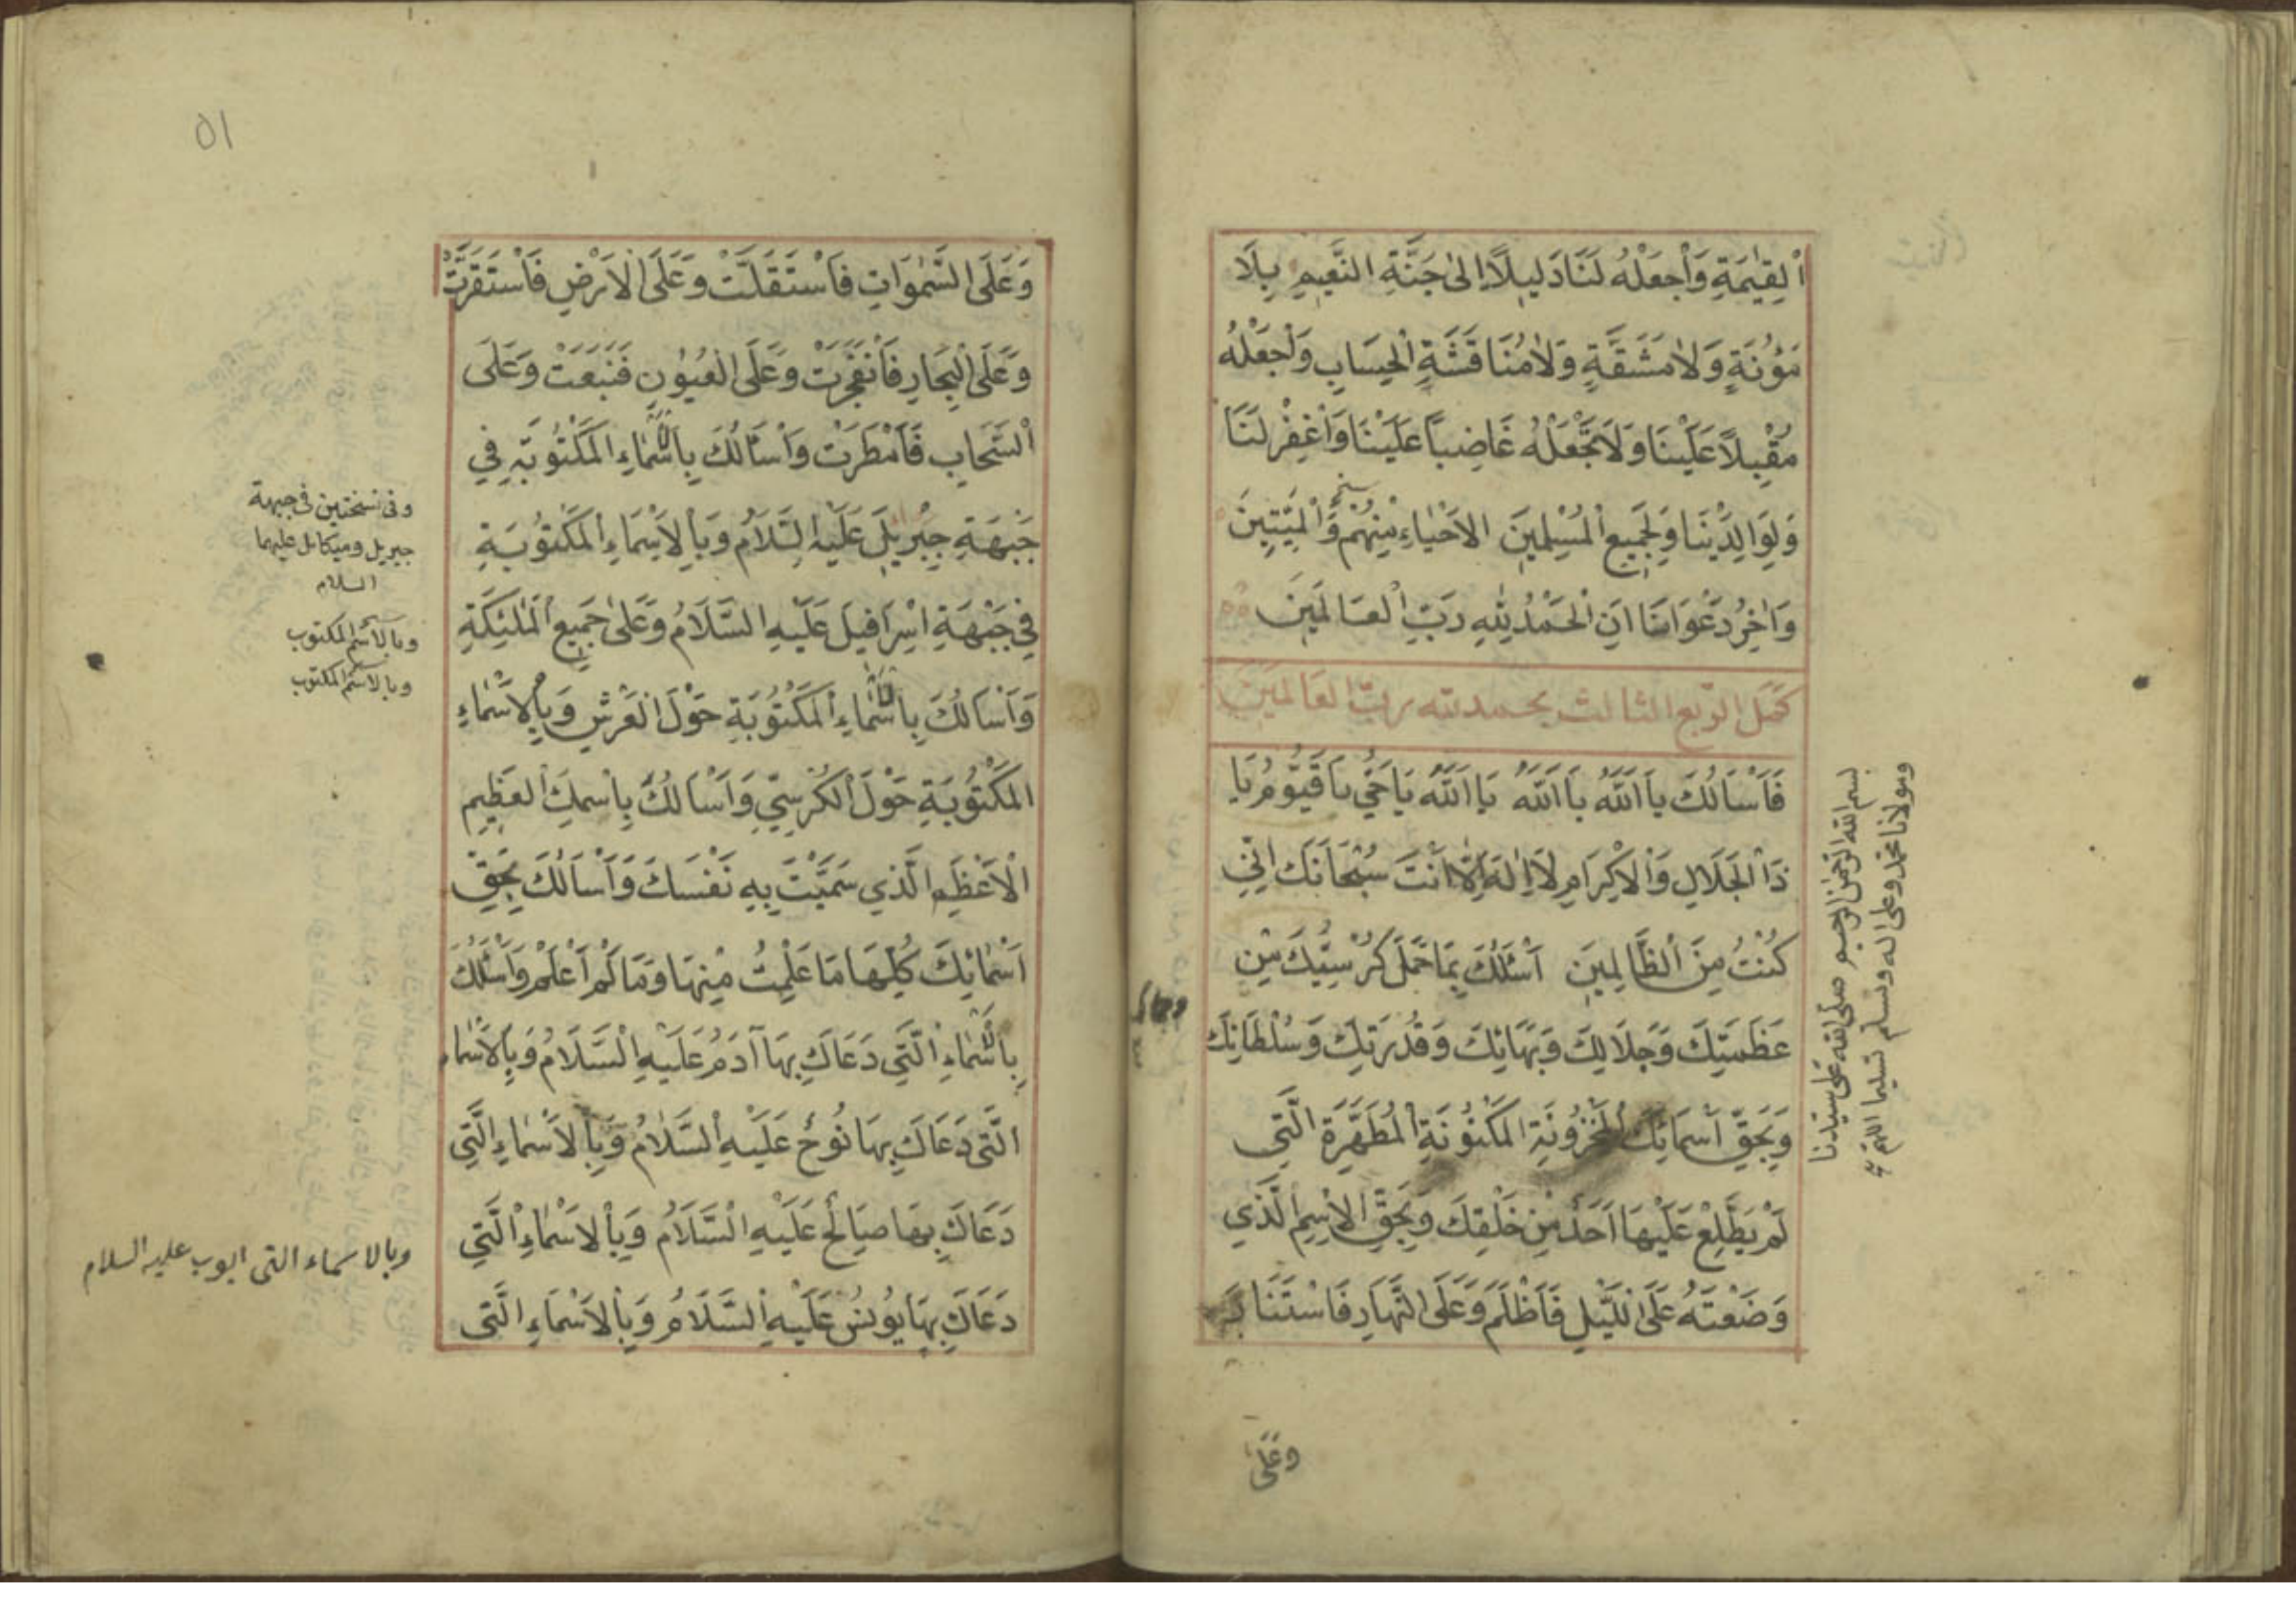 اَلْقِيٰمَةِ وَاْجعَلْهُ لَنَا دَلِيلاً اِلىٰ جَنَّةِ النَّعِيمِ بِلَا
مَؤُنَةٍ وَلاٰ مَشَقَّةٍ وَلاٰ مُنَاقَشَةِ اْلحِسَابِ وَاْجعَلْهُ
مُقْبِلاً عَلَيْنَا وَلَا تَجْعَلْهُ غَاضِباً عَلَيْنَا وَاْغفِرْ لَنَا
وَلِوَالِدَيْنَا وَلِجَمِيعِ اْلمُسْلِمِينَ الاَحْيَاءِ مِنْهُمْ وَاْلمَيِّتِينَ
وَاٰخِرُ دَعْوَانَا اَنِ اْلحَمْدُ لِلّٰهِ رَبِّ اْلعَالَمِينَ
كمل الرّبع الثالث بحمد لله ربّ العَالمَينَ
فَاَسْاَلُكَ يَا اَللّٰهُ يَا اَللّٰهُ يَا اَللّٰهُ يَا حَيُّ يَا قَيُّومُ يَا
ذَا اْلجَلَالِ وَاْلاِكْرَامِ لَا اِلٰهَ اِلَّا اَنْتَ سُبْحَانَكَ اِنِّي
كُنْتُ مِنَ اْلظَّالِمِينَ اَسْئَلُكَ بِمَا حَمَلَ كُرْسِيُّكَ مِنْ
عَظَمَتِكَ وَجَلَالِكَ وَبَهَائِكَ وَقُدْرَتِكَ وَسُلْطَانِكَ
وَبِحَقِّ اَسْمَائِكَ اْلمَخْزُونَةِ اْلمَكْنُونَةِ اْلمُطَهَّرَةِ الَّتِي
لَمْ يَطَّلِعْ عَلَيْهَا اَحَدٌ مِنْ خَلْقِكَ وَبِحَقِّ الاِسْمِ الَّذِي
وَضَعْتَهُ عَلَى اللَّيْلِ فَاَظْلَمَ وَعَلَى النَّهَارِ فَاسْتَنَارَ
وَعَلَى
بسم الله الرحمن الرحيم صلى الله على سيدنا
ومولانا محمد وعلى اله وسلم تسليما اللهم
٥١
وَعَلَى السَّمٰوَاتِ فَاسْتَقَلَّتْ وَعَلَى الاَرْضِ فَاسْتَقَرَّتْ
وَعَلَى اْلبِحَارِ فَانْفَجَرَتْ وَعَلَى اْلعُيُونِ فَنَبَعَتْ وَعَلَى
اْلسَّحَابِ فَاَمْطَرَتْ وَاَسْاَلُكَ بِالاَسْمَاءِ اْلمَكْتُوبَةِ فِي
جَبْهَةِ جِبْرِيلَ عَلَيْهِ السَّلَامُ وَبِالاَسْمَاءِ اْلمَكْتُوبَةِ
فِي جَبْهَةِ اِسْرَافِيلَ عَلَيْهِ السَّلَامُ وَعَلىٰ جَمِيعِ اْلمَلٰئِكَةِ
وَاَسْاَلُكَ بِالاَسْمَاءِ اْلمَكْتُوبَةِ حَوْلَ اْلعَرْشِ وَبِالاَسْمَاءِ
اْلمَكْتُوبَةِ حَوْلَ اْلكُرْسِيِّ وَاَسْاَلُكَ بِاسْمِكَ اْلعَظِيمِ
اْلاَعْظَمِ الَّذِي سَمَّيْتَ بِهِ نَفْسَكَ وَاَسْاَلُكَ بِحَقِّ
اَسْمَائِكَ كُلِّهَا مَا عَلِمْتُ مِنْهَا وَمَا لَمْ اَعْلَمْ وَاَسْئَلُكَ
بِالاَسْمَاءِ الَّتِي دَعَاكَ بِهَا آدَمُ عَلَيْهِ السَّلَامُ وَبِالاَسْمَاءِ
الَّتِي دَعَاكَ بِهَا نُوحٌ عَلَيْهِ السَّلَامُ وَبِالاَسْمَاءِ الَّتِي
دَعَاكَ بِهَا صَالِحٌ عَلَيْهِ السَّلَامُ وَبِالاَسْمَاءِ الَّتِي
دَعَاكَ بِهَا يُونُسُ عَلَيْهِ السَّلَامُ وَبِالاَسْمَاءِ الَّتِي
وفى نسختين فى جبهة
جبريل وميكائل عليهما
السلام
وبالاسم المكتوب
وبالاسم المكتوب
وبالاسماء التى ايوب عليه السلام